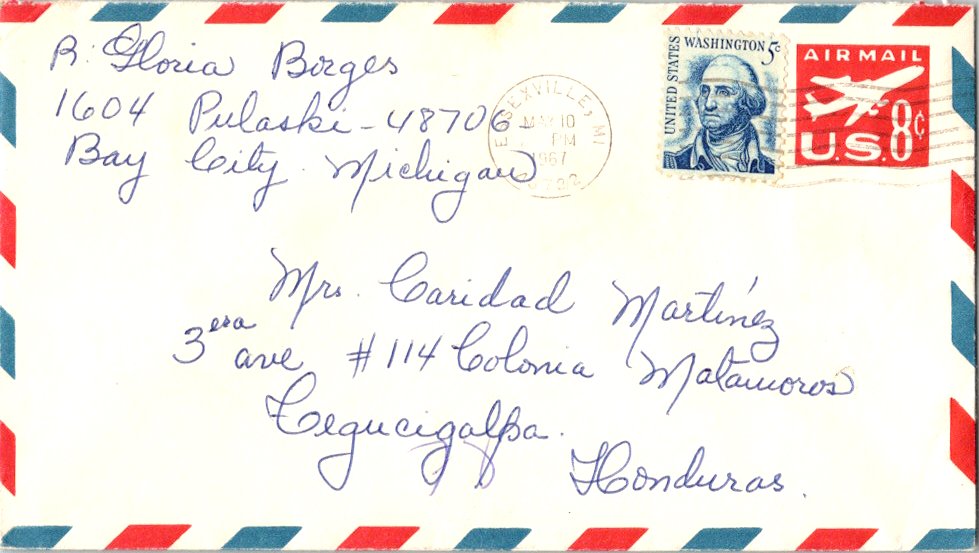 R. Gloria Borges
1604 Pulaski - 48706
Bay City Michigan
ESSEXVILLE, MI
MAY 10
PM
1967
UNITED STATES
WASHINGTON 5c
AIR MAIL
U.S. 8¢
Mrs. Caridad Martínez
3era ave #114 Colonia Matamoros
Tegucigalpa.
Honduras.